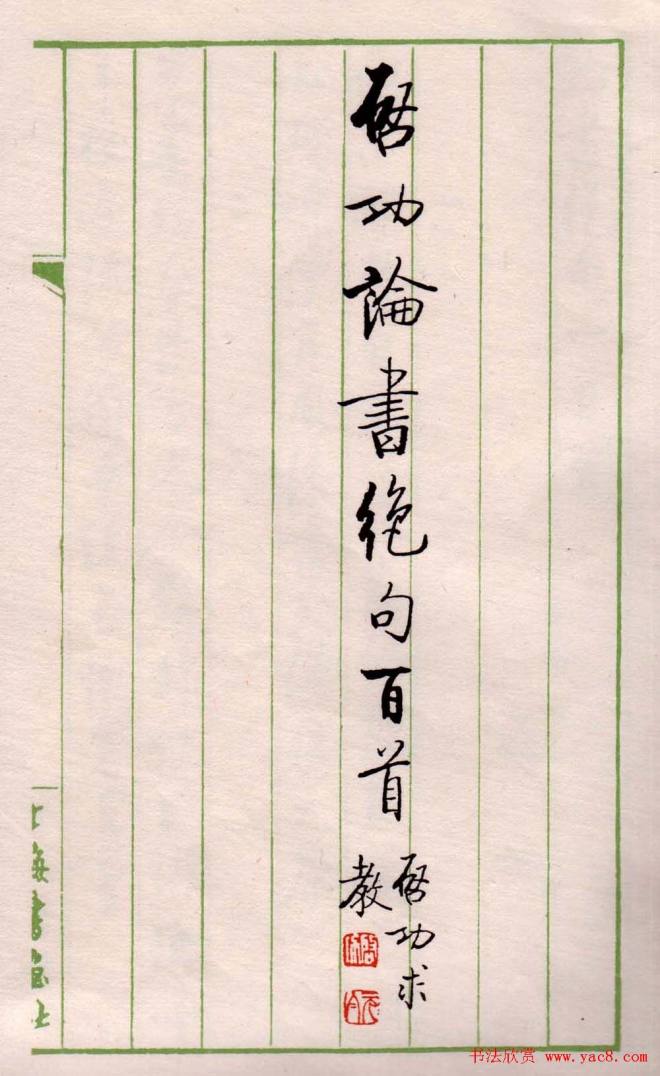 啓功論書絶句百首
啓功求
教
上海書畫社
书法欣赏 www.yac8.com